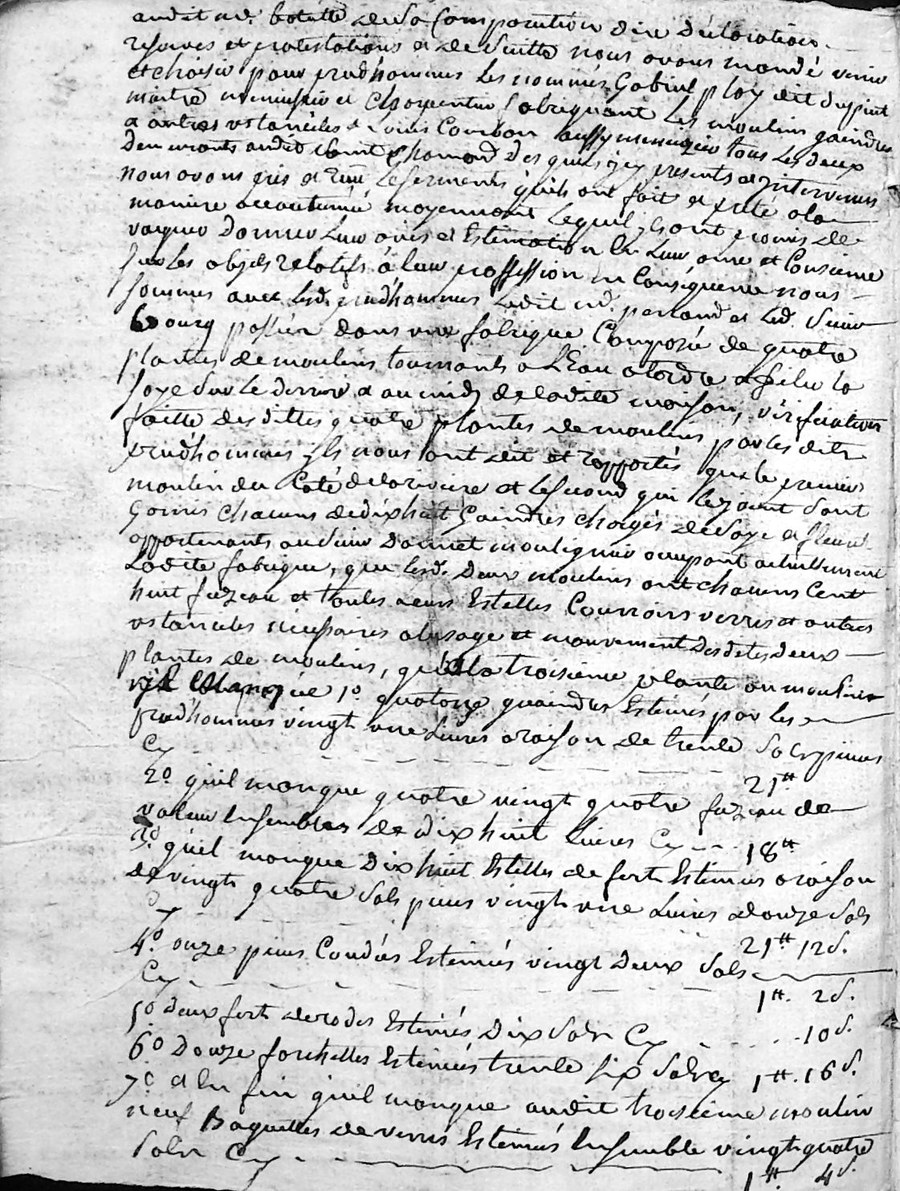 audit md. botalle de sa Comparution dire declaration
reserves et protestations et de suitte nous avons mandé venir
et choisir pour prudhommes les nommés Gabriel ploy dit dupint
maitre menuisier et Charpentier fabriquant les moulins gaindres
et autres ustancilles et Louis Combon aussy menuizier tous les deux
demeurants audit Saint Chamond desquels icy presents et intervenus
nous avons pris et reçu le serment quils ont fait et preté a la
maniere accoutumée moyennant lequel ils ont promis de
vaquer donner leur avis et Estimation en leur ame et Consience
sur les objets relatifs à leur proffession en Conséquence nous
sommes avec lesd. prudhommes ledit md. parland et led. Sieur
Bourg passés dans une fabrique Composée de quatre
plantes de moulins tournants a l'Eau a tordre et filer la
soye sur le derriere et au midy de ladite maison, vérification
faitte des dittes quatre plantes de moulins par les dits
prudhommes ils nous ont dit et rapportés que le premier
moulin du Coté de la riviere et le second qui le joint sont
Garnis chacuns de dix huit Gaindres chargés de soye et fleuret
appartenants au Sieur Donnet moulignier occupant actuellement
Ladite fabrique, que lesd. Deux moulins ont chacuns Cent
huit fuzeau et toutes leurs Estelles Courroirs verres et autres
ustancilles necessaires a lusage et mouvement desdites deux
plantes de moulins, qu'à la troisieme plante ou moulin
il manque 1o. quatorze guaindres Estimés par les
prudhommes vingt une Livres a raison de trente sols piece
Cy 21tt
2o. qu'il manque quatre vingt quatre fuzeau de
valeur Ensembles de dix huit livres Cy 18tt
3o. qu'il manque Dix huit Estelles de fort Estimés a raison
de vingt quatre sols piece vingt une Livres douze sols
Cy 21tt 12s.
4o. onze pieces Condés Estimés vingt deux sols
Cy 1tt. 2s.
5o. deux fort de rodes Estimés Dix Sols Cy 10s.
6o. Douze fourchettes Estimés trente six Sols cy 1tt. 16s.
7o. et En fin qu'il manque audit troisieme moulin
neuf Baguettes de verres Estimés Ensemble vingt quatre
Sols Cy 1tt. 4s.